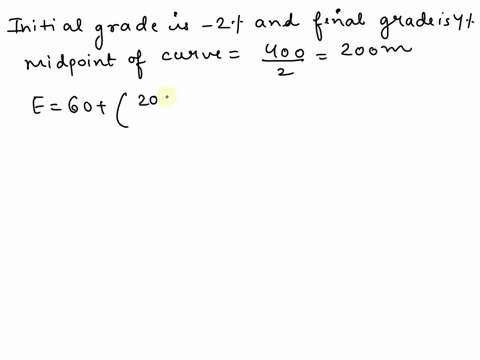 Initial grade is -2% and final grade is 4%
midpoint of curve = 400/2 = 200m
E = 60 + ( 20